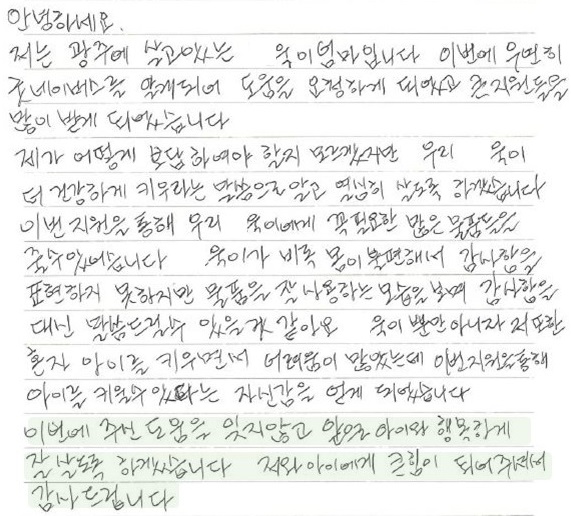 안녕하세요.
저는 광주에 살고있는 욱이엄마입니다 이번에 우연히
굿네이버스를 알게되어 도움을 요청하게 되었고 큰지원들을
많이 받게 되었습니다
제가 어떻게 보답하여야 할지 모르겠지만 우리 욱이
더 건강하게 키우라는 말씀으로 알고 열심히 살도록 하겠습니다
이번 지원을 통해 우리 욱이에게 꼭필요한 많은 물품들을
줄수있었습니다 욱이가 비록 몸이 불편해서 감사함을
표현하지 못하지만 물품을 잘 사용하는 모습을 보며 감사함을
대신 말씀드릴수 있을것 같아요 욱이 뿐만아니라 저 또한
혼자 아이를 키우면서 어려움이 많았는데 이번지원을통해
아이를 키울수있다는 자신감을 얻게 되었습니다
이번에 주신 도움을 잊지않고 앞으로 아이와 행복하게
잘 살도록 하겠습니다 저와아이에게 큰힘이 되어주셔서
감사드립니다